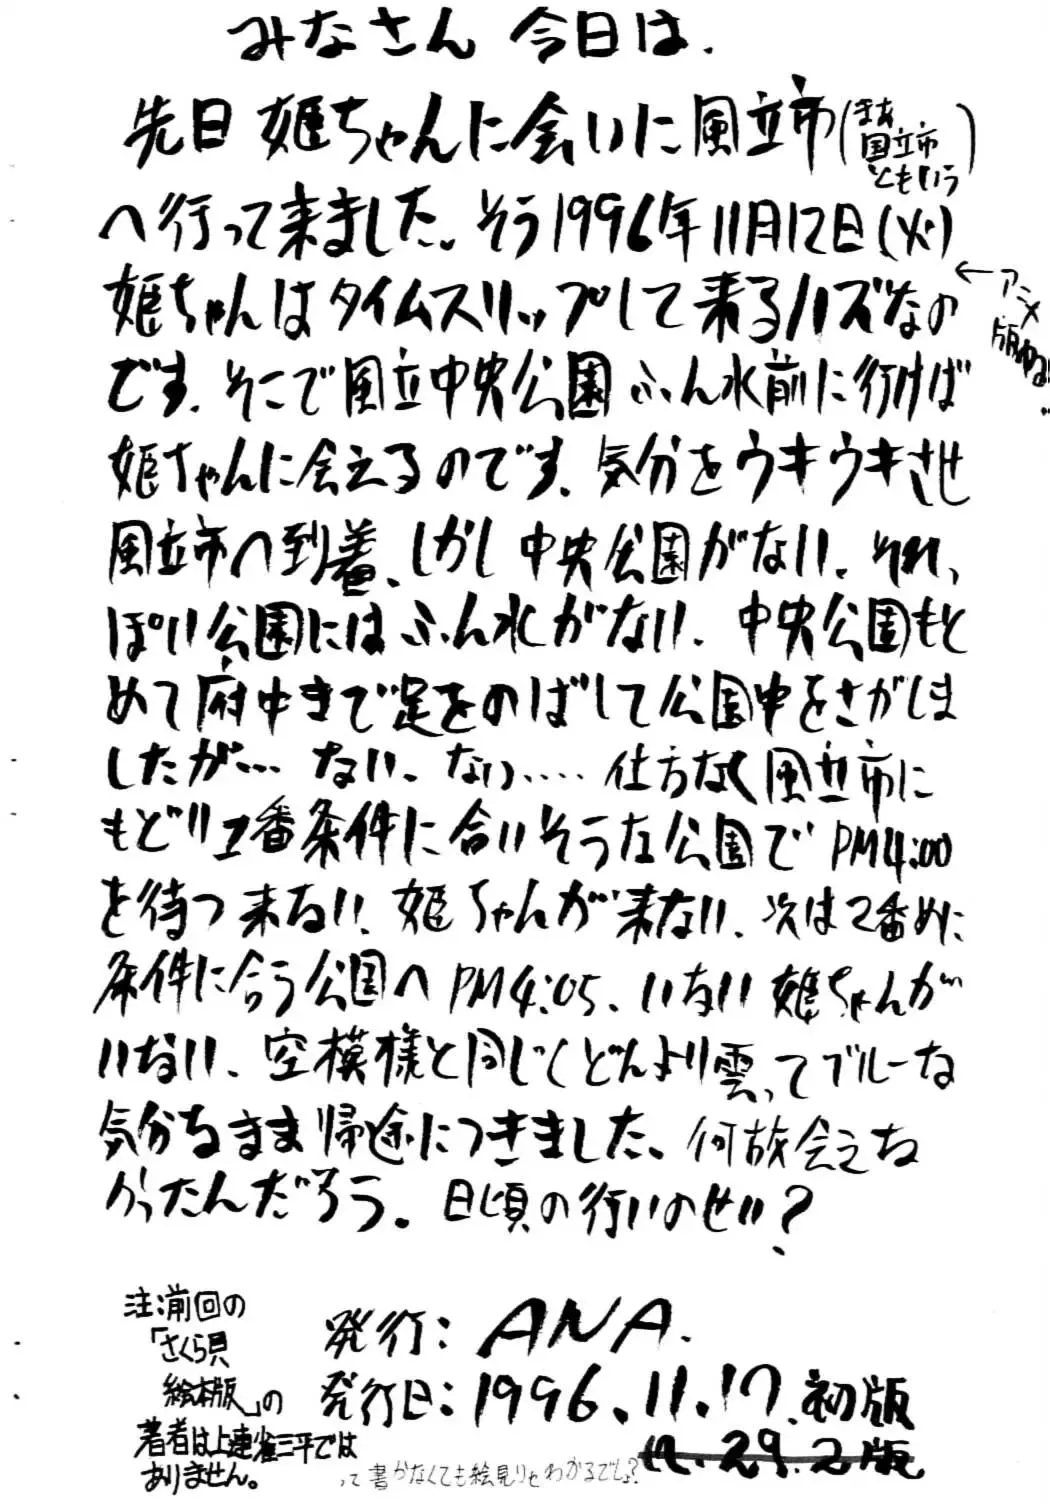 みなさん 今日は.
先日 姫ちゃんに会いに風立市(まあ国立市ともいう)
へ行って来ました。そう1996年11月12日(火)
←アニメ版ねっ!!
姫ちゃんはタイムスリップして来るハズなの
です. そこで風立中央公園ふん水前に行けば
姫ちゃんに会えるのです. 気分をウキウキさせ
風立市へ到着、しかし中央公園がない. それっ
ぽい公園にはふん水がない. 中央公園もと
めて府中まで足をのばして公園中をさがしま
したが… ない、ない…‥ 仕方なく風立市に
もどり1番条件に合いそうな公園でPM4:00
を待つ来ない. 姫ちゃんが来ない. 次は2番めに
条件に合う公園へPM4:05、いない姫ちゃんが
いない、空模様と同じくどんより雲ってブルーな
気分なまま帰途につきました、何故会えな
かったんだろう. 日頃の行いのせい?
注:前回の
「さくら貝
絵本版」の
著者は上連雀三平では
ありません。
って書かなくても絵見りゃわかるでしょ?
発行: ANA.
発行日: 1996.11.17.初版
11.29.2版